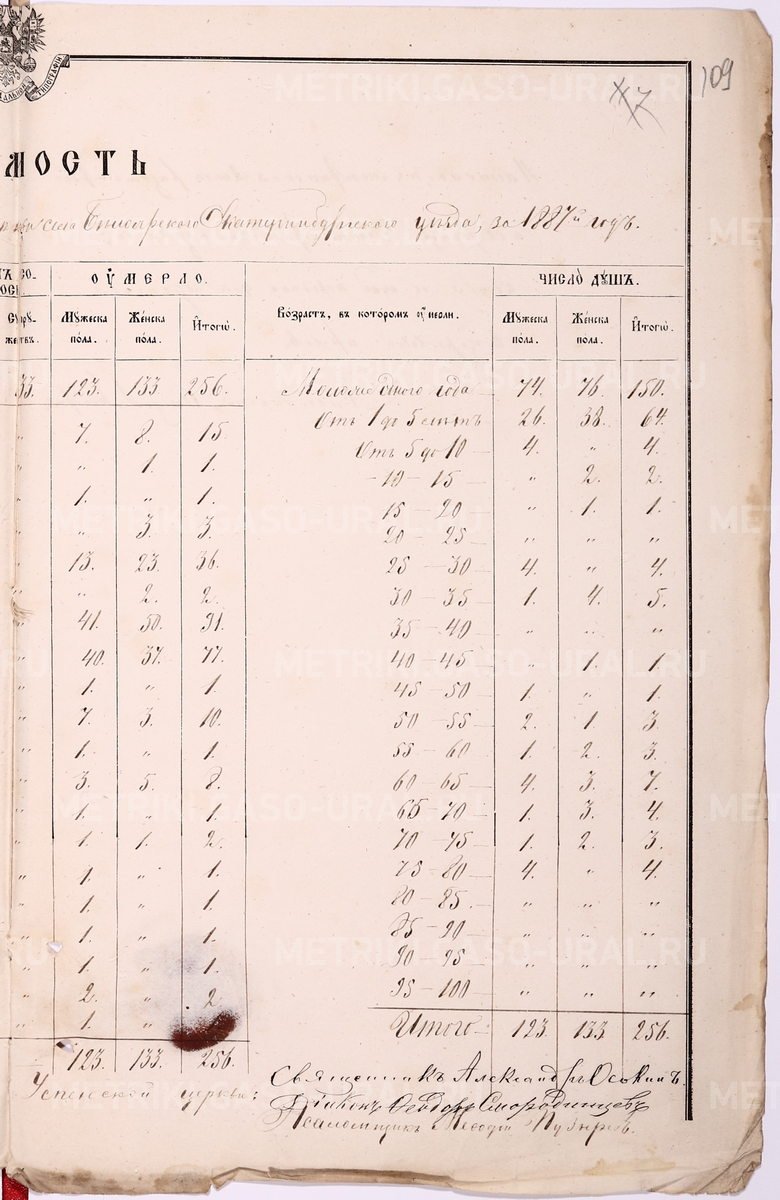 109
7
МОСТЬ
села Екатеринбургскаго уѣзда, за 1887й годъ.
ОУМЕРЛО. ЧИСЛО ДУШЪ.
Мужеска пола. Женска пола. Итого. Возрастъ, въ которомъ умерли. Мужеска пола. Женска пола. Итого.
33. 123. 133. 256. Моложе одного года 74. 76. 150.
7. 8. 15. Отъ 1 до 5 лѣтъ 26. 38. 64.
„ 1. 1. Отъ 5 до 10 4. „ 4.
1. „ 1. 10 — 15 „ 2. 2.
„ 3. 3. 15 — 20 „ 1. 1.
13. 23. 36. 20 — 25 „ „ „
„ 2. 2. 25 — 30 4. „ 4.
41. 50. 91. 30 — 35 1. 4. 5.
40. 37. 77. 35 — 40 „ „ „
1. „ 1. 40 — 45 „ 1. 1.
7. 3. 10. 45 — 50 1. „ 1.
1. „ 1. 50 — 55 2. 1 3.
3. 5. 8. 55 — 60 1. 2. 3.
1. „ 1. 60 — 65 4. 3. 7.
1. 1. 2. 65 — 70 1. 3. 4.
1. „ 1. 70 — 75 1. 2. 3.
1. „ 1. 75 — 80 4. „ 4.
1. „ 1. 80 — 85. „ „ „
1. „ 1. 85 — 90 „ „ „
2. „ 2. 90 — 95 „ „ „
1. „ 95 — 100 „ „ „
123. 133. 256. Итого 123 133 256.
Успенской церкви: Священникъ Александръ Осокинъ.
Діаконъ Ѳеодоръ Смородинцевъ
Псаломщикъ Меѳодій
METRIKI.GASO-URAL.RU